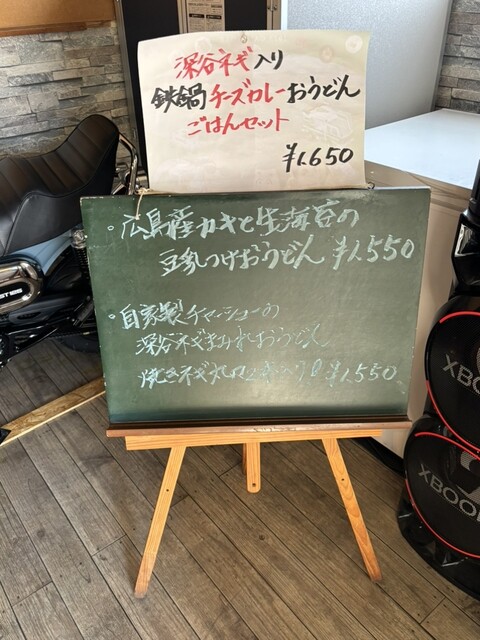 深谷ネギ入り
鉄鍋チーズカレーおうどん
ごはんセット
¥1,650
・広島産カキと生海苔の
豆乳つけおうどん ¥1,550
・自家製チャーシューの
深谷ネギまみれおうどん
焼きネギ丸ごと ¥1,550
XBOO
XBOO